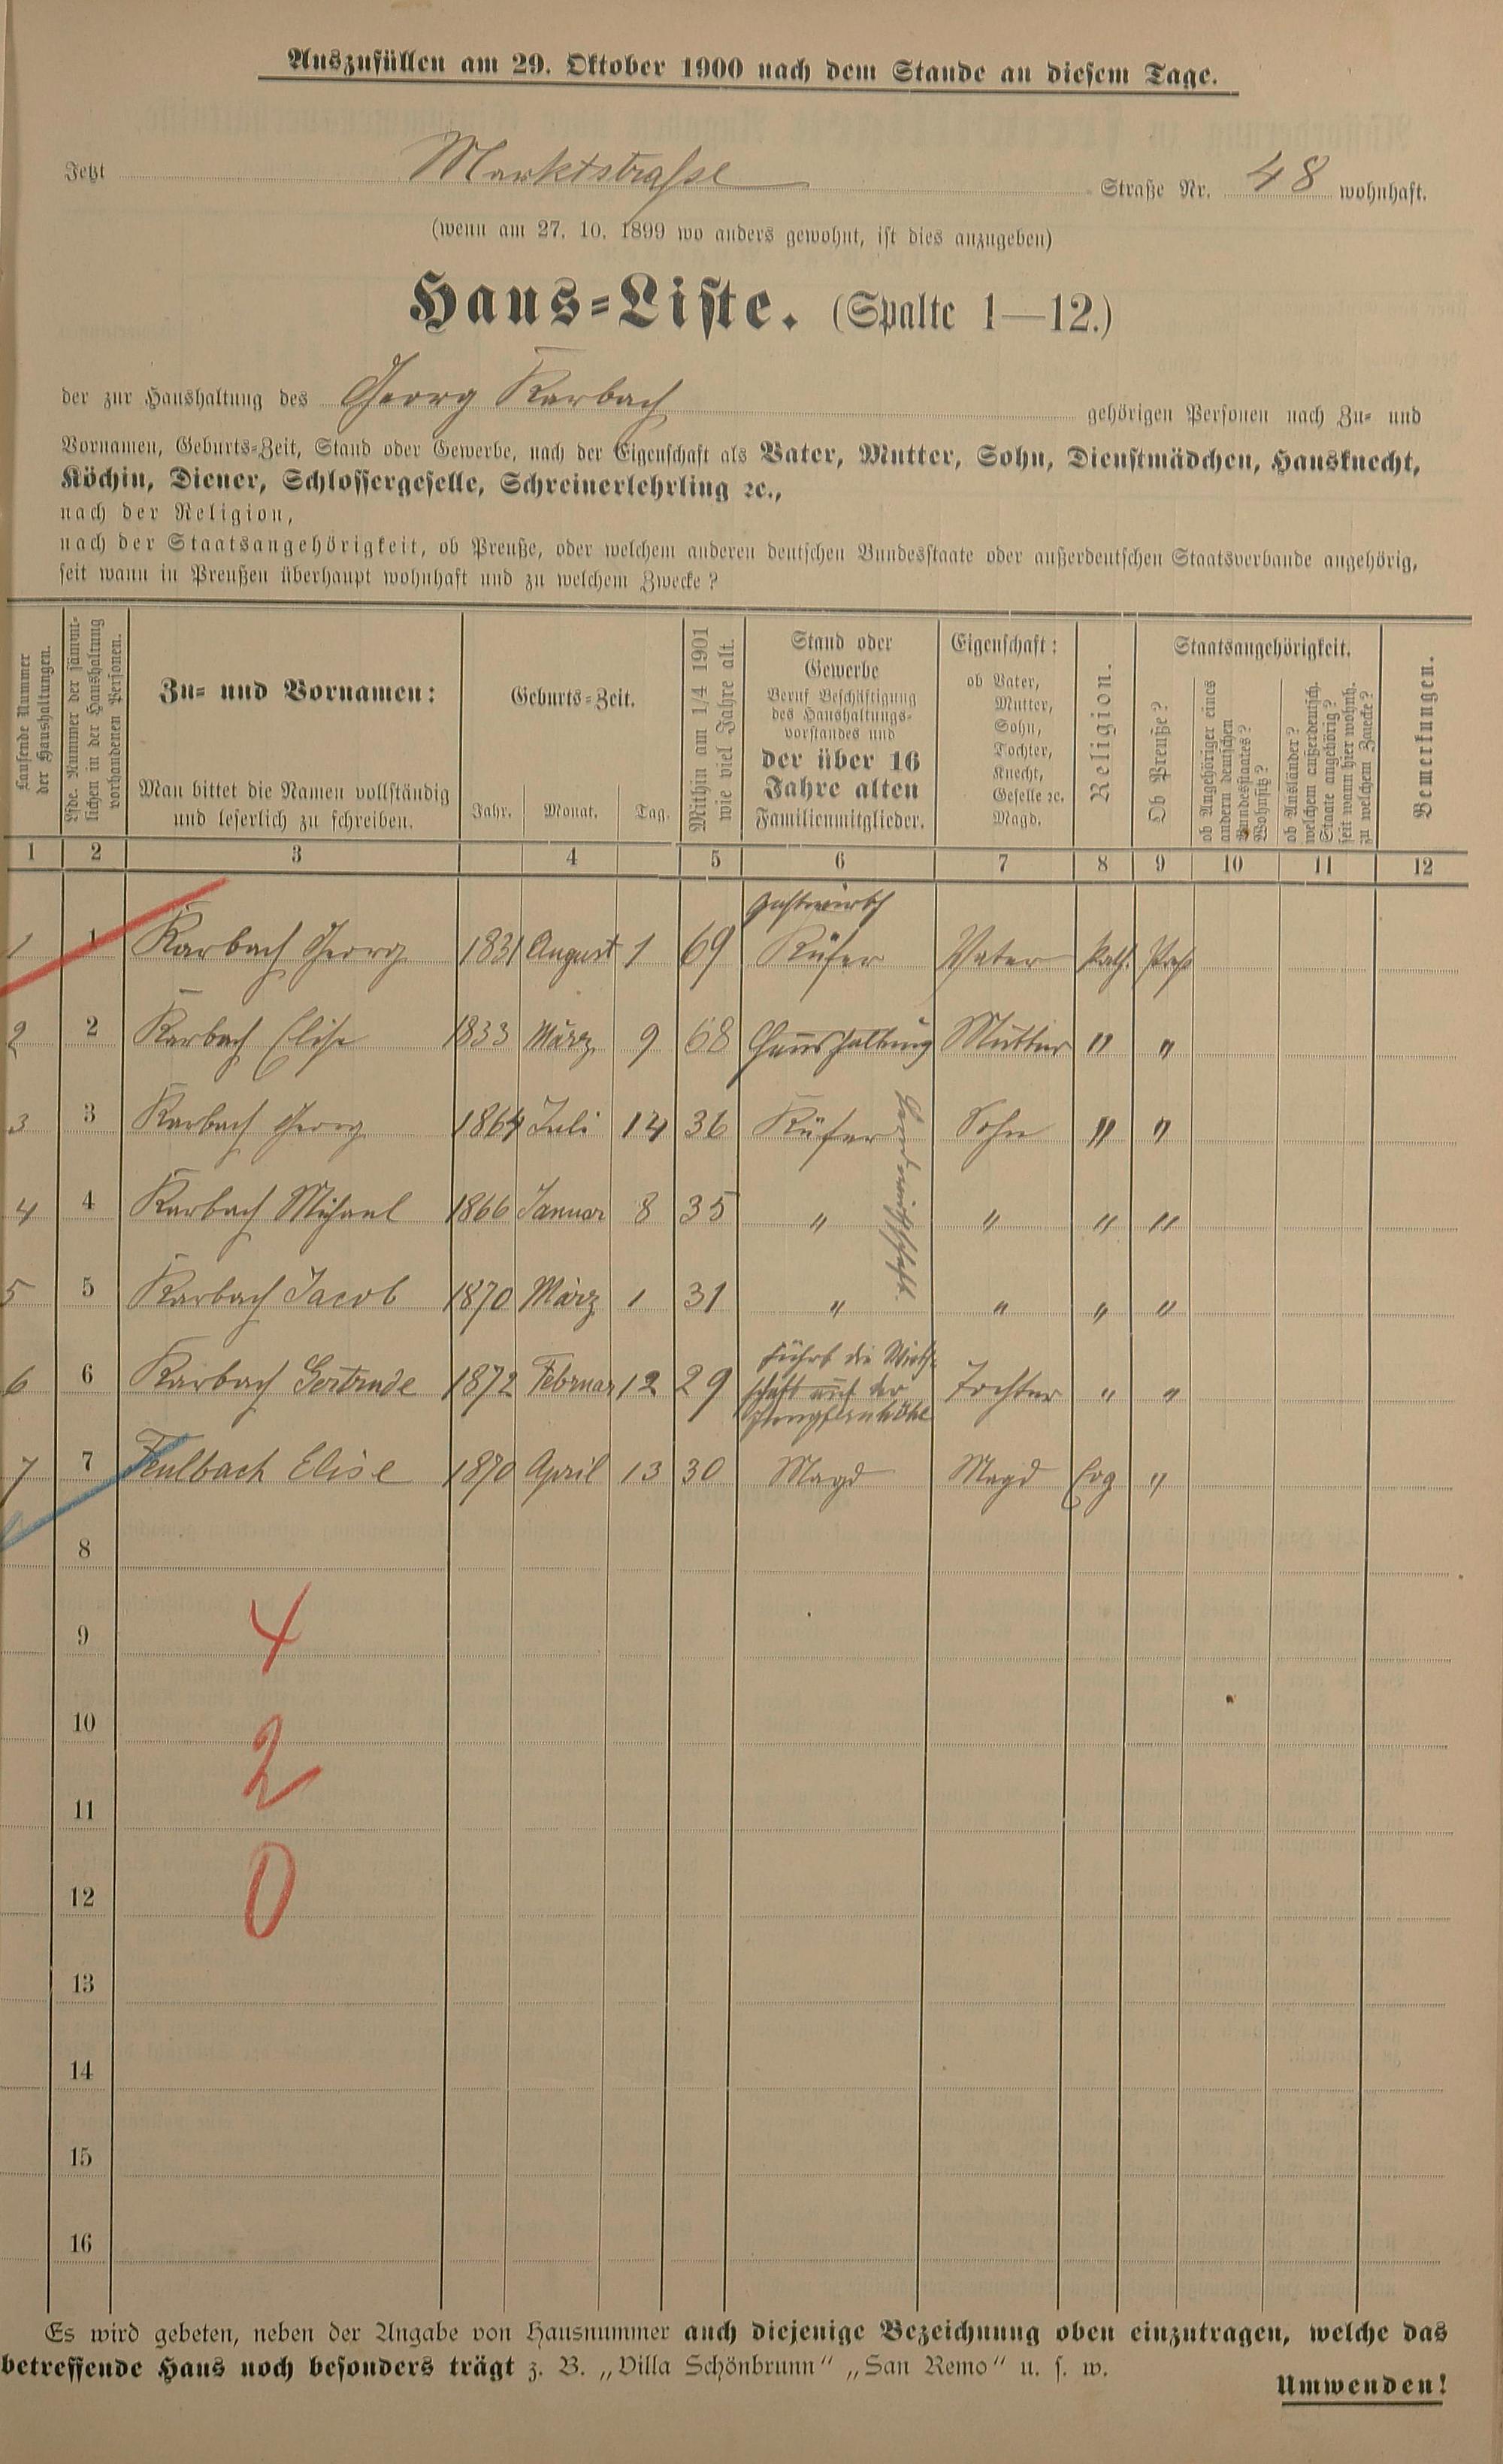 Auszufüllen am 29. Oktober 1900 nach dem Stande an diesem Tage.
Jetzt Marktstraße Straße Nr. 48 wohnhaft.
(wenn am 27. 10. 1899 wo anders gewohnt, ist dies anzugeben)
Haus-Liste. (Spalte 1—12.)
der zur Haushaltung des Georg Karbach gehörigen Personen nach Zu- und
Vornamen, Geburts-Zeit, Stand oder Gewerbe, nach der Eigenschaft als Vater, Mutter, Sohn, Dienstmädchen, Hausknecht,
Köchin, Diener, Schlossergeselle, Schreinerlehrling ꝛc.,
nach der Religion,
nach der Staatsangehörigkeit, ob Preuße, oder welchem anderen deutschen Bundesstaate oder außerdeutschen Staatsverbande angehörig,
seit wann in Preußen überhaupt wohnhaft und zu welchem Zwecke?
Laufende Nummer
der Haushaltungen.
Lfde. Nummer der sämmt-
lichen in der Haushaltung
vorhandenen Personen.
Zu- und Vornamen:
Man bittet die Namen vollständig
und leserlich zu schreiben.
Geburts-Zeit.
Jahr. Monat. Tag.
Mithin am 1/4 1901
wie viel Jahre alt.
Stand oder
Gewerbe
Beruf Beschäftigung
des Haushaltungs-
vorstandes und
der über 16
Jahre alten
Familienmitglieder.
Eigenschaft:
ob Vater,
Mutter,
Sohn,
Tochter,
Knecht,
Geselle ꝛc.
Magd.
Religion.
Staatsangehörigkeit.
Ob Preuße?
ob Angehöriger eines
andern deutschen
Bundesstaates?
Wohnsitz?
ob Ausländer?
welchem außerdeutsch.
Staate angehörig?
seit wann hier wohnh.
zu welchem Zwecke?
Bemerkungen.
1 2 3 4 5 6 7 8 9 10 11 12
Gastwirth
1 1 Karbach Georg 1831 August 1 69 Küfer Vater kath. Preuß
2 2 Karbach Elise 1833 März 9 68 Haushaltung Mutter " "
3 3 Karbach Georg 1864 Juli 14 36 Küfer Sohn " "
4 4 Karbach Michael 1866 Januar 8 35 " " " "
5 5 Karbach Jacob 1870 März 1 31 " " " "
Landwirthschaft
führt die Wirth-
6 6 Karbach Gertrude 1872 Februar 12 29 schaft auf der Tochter " "
Jungfernhöhe
7 7 Faulbach Elise 1870 April 13 30 Magd Magd Evg "
8
9
4
10
2
11
12
0
13
14
15
16
Es wird gebeten, neben der Angabe von Hausnummer auch diejenige Bezeichnung oben einzutragen, welche das
betreffende Haus noch besonders trägt z. B. „Villa Schönbrunn" „San Remo" u. s. w.
Umwenden!